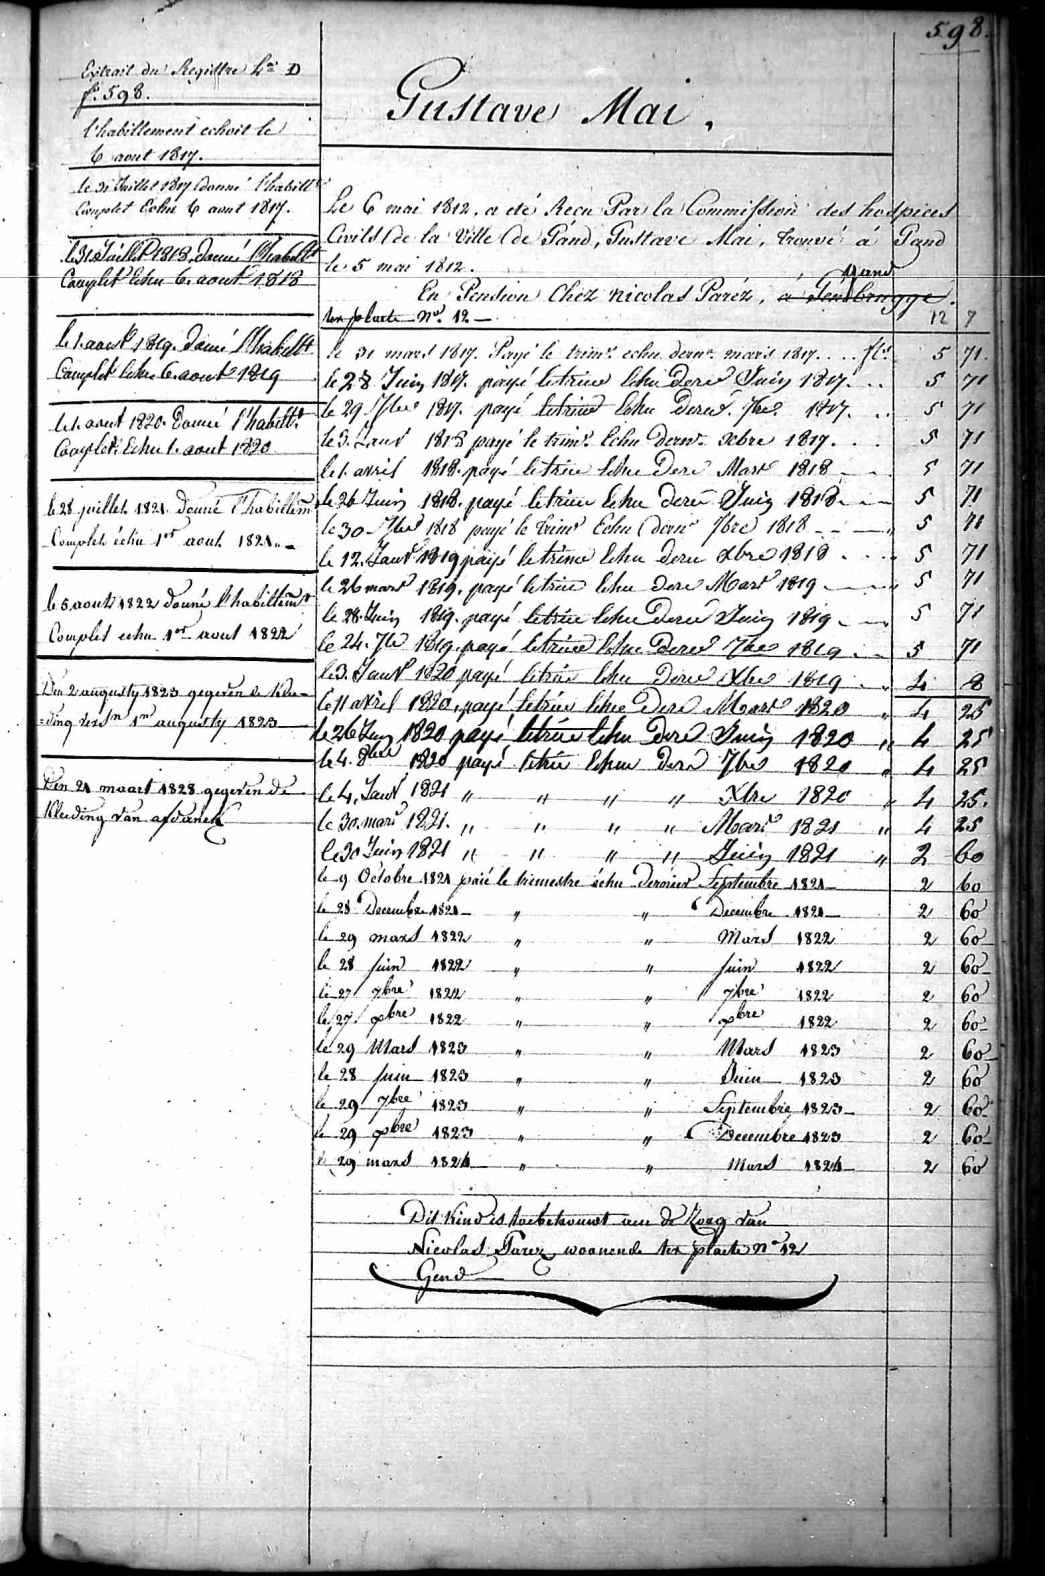 598.
Extrait du Registre L.ra D
f.o 598.
l'habillement echoit le
6 aout 1817.
le 31 Juillet 1817 donné l'habillt
Complet Echu 6 aout 1817.
le 31 Juillet 1818, donné l'habillt
Complet Echu 6. aout 1818
le 1. aout 1819. donné l'habillt
Complet Echu 6. aout 1819
le 1. aout 1820. Donné l'habillt
Complet. Echu 1. aout 1820
le 28 juillet 1821. Donné l'habillem
Complet échu 1er aout 1821.
le 5 aout 1822 donné l'habillemt
Complet echu 1er aout 1822
Den 2 augusty 1823 gegeven de klee=
=ding versn 1n augusty 1823
Den 21 maart 1828 gegeven de
kleeding van afdanck
Gustave Mai.
Le 6 mai 1812, a eté Recu Par la Commission des hospices
Civils de la Ville de Gánd, Gustave Mai, trouvé á Gand
le 5 mai 1812.
gand
En Pension Chéz nicolas Paréz, á Gendbrugge.
ter plaete No. 12 12 7
le 31 mars 1817. Payé le trimr echu dernr mars 1817. . . . fls 5 71.
le 28 Juin 1817. payé le trim Echu Derr Juin 1817. . . 5 71
le 29. 7bre 1817. payé le trim Echu Derr. 7bre 1817. . . 5 71
le 3. Janv 1818 payé le trimr. Echu dernr. xbre 1817. . . . 5 71
le 1. avril 1818. payé le trim Echu Derr Mars 1818 5 71
le 26 Juin 1818. payé le trim Echu Derr Juin 1818. 5 71
le 30 7bre 1818 payé le trimr Echu dernr 7bre 1818 5 71
le 12. Janv 1819 payé le trim Echu Derr Xbre 1818 . . . . 5 71
le 26 mars 1819. payé le trim Echu Derr Mars 1819 " 5 71
le 28 Juin 1819. payé le trim Echu Derr Juin 1819 5 71
le 24. 7bre 1819. payé le trim Echu Derr 7bre 1819 5 71
le 3. Janv 1820 payé le trim Echu Derr Xbre 1819 " 4 8
le 11 avril 1820, payé le trim Echu Derr Mars 1820 " 4 25
le 26 Juin 1820 payé le trim Echu Derr Juin 1820 " 4 25
le 4. 8bre 1820 payé le trim Echu Derr 7bre 1820 " 4 25
le 4. Janv 1821 " " " " Xbre 1820 " 4 25.
le 30. mars 1821. " " " " Mars 1821 " 4 25
le 30 Juin 1821 " " " " Juin 1821 " 2 60
le 9 Octobre 1821 paié le trimestre échu dernier Septembre 1821 2 60
le 28 Decembre 1821 " " Decembre 1821 2 60
le 29 mars 1822 " " Mars 1822 2 60
le 28 juin 1822 " " juin 1822 2 60
le 27 7bre 1822 " " 7bre 1822 2 60
le 27. xbre 1822 " " xbre 1822 2 60
le 29 Mars 1823 " " Mars 1823 2 60
le 28 juin 1823 " " Juin 1823 2 60
le 29 7bre 1823 " " Septembre 1823 2 60
le 29 xbre 1823 " " Decembre 1823 2 60
le 29 mars 1824 " " Mars 1824 2 60
Dit Kind is toebetrouwt aen de Zorg van
Nicolas Parez woonende ter plaete No 12
Gend